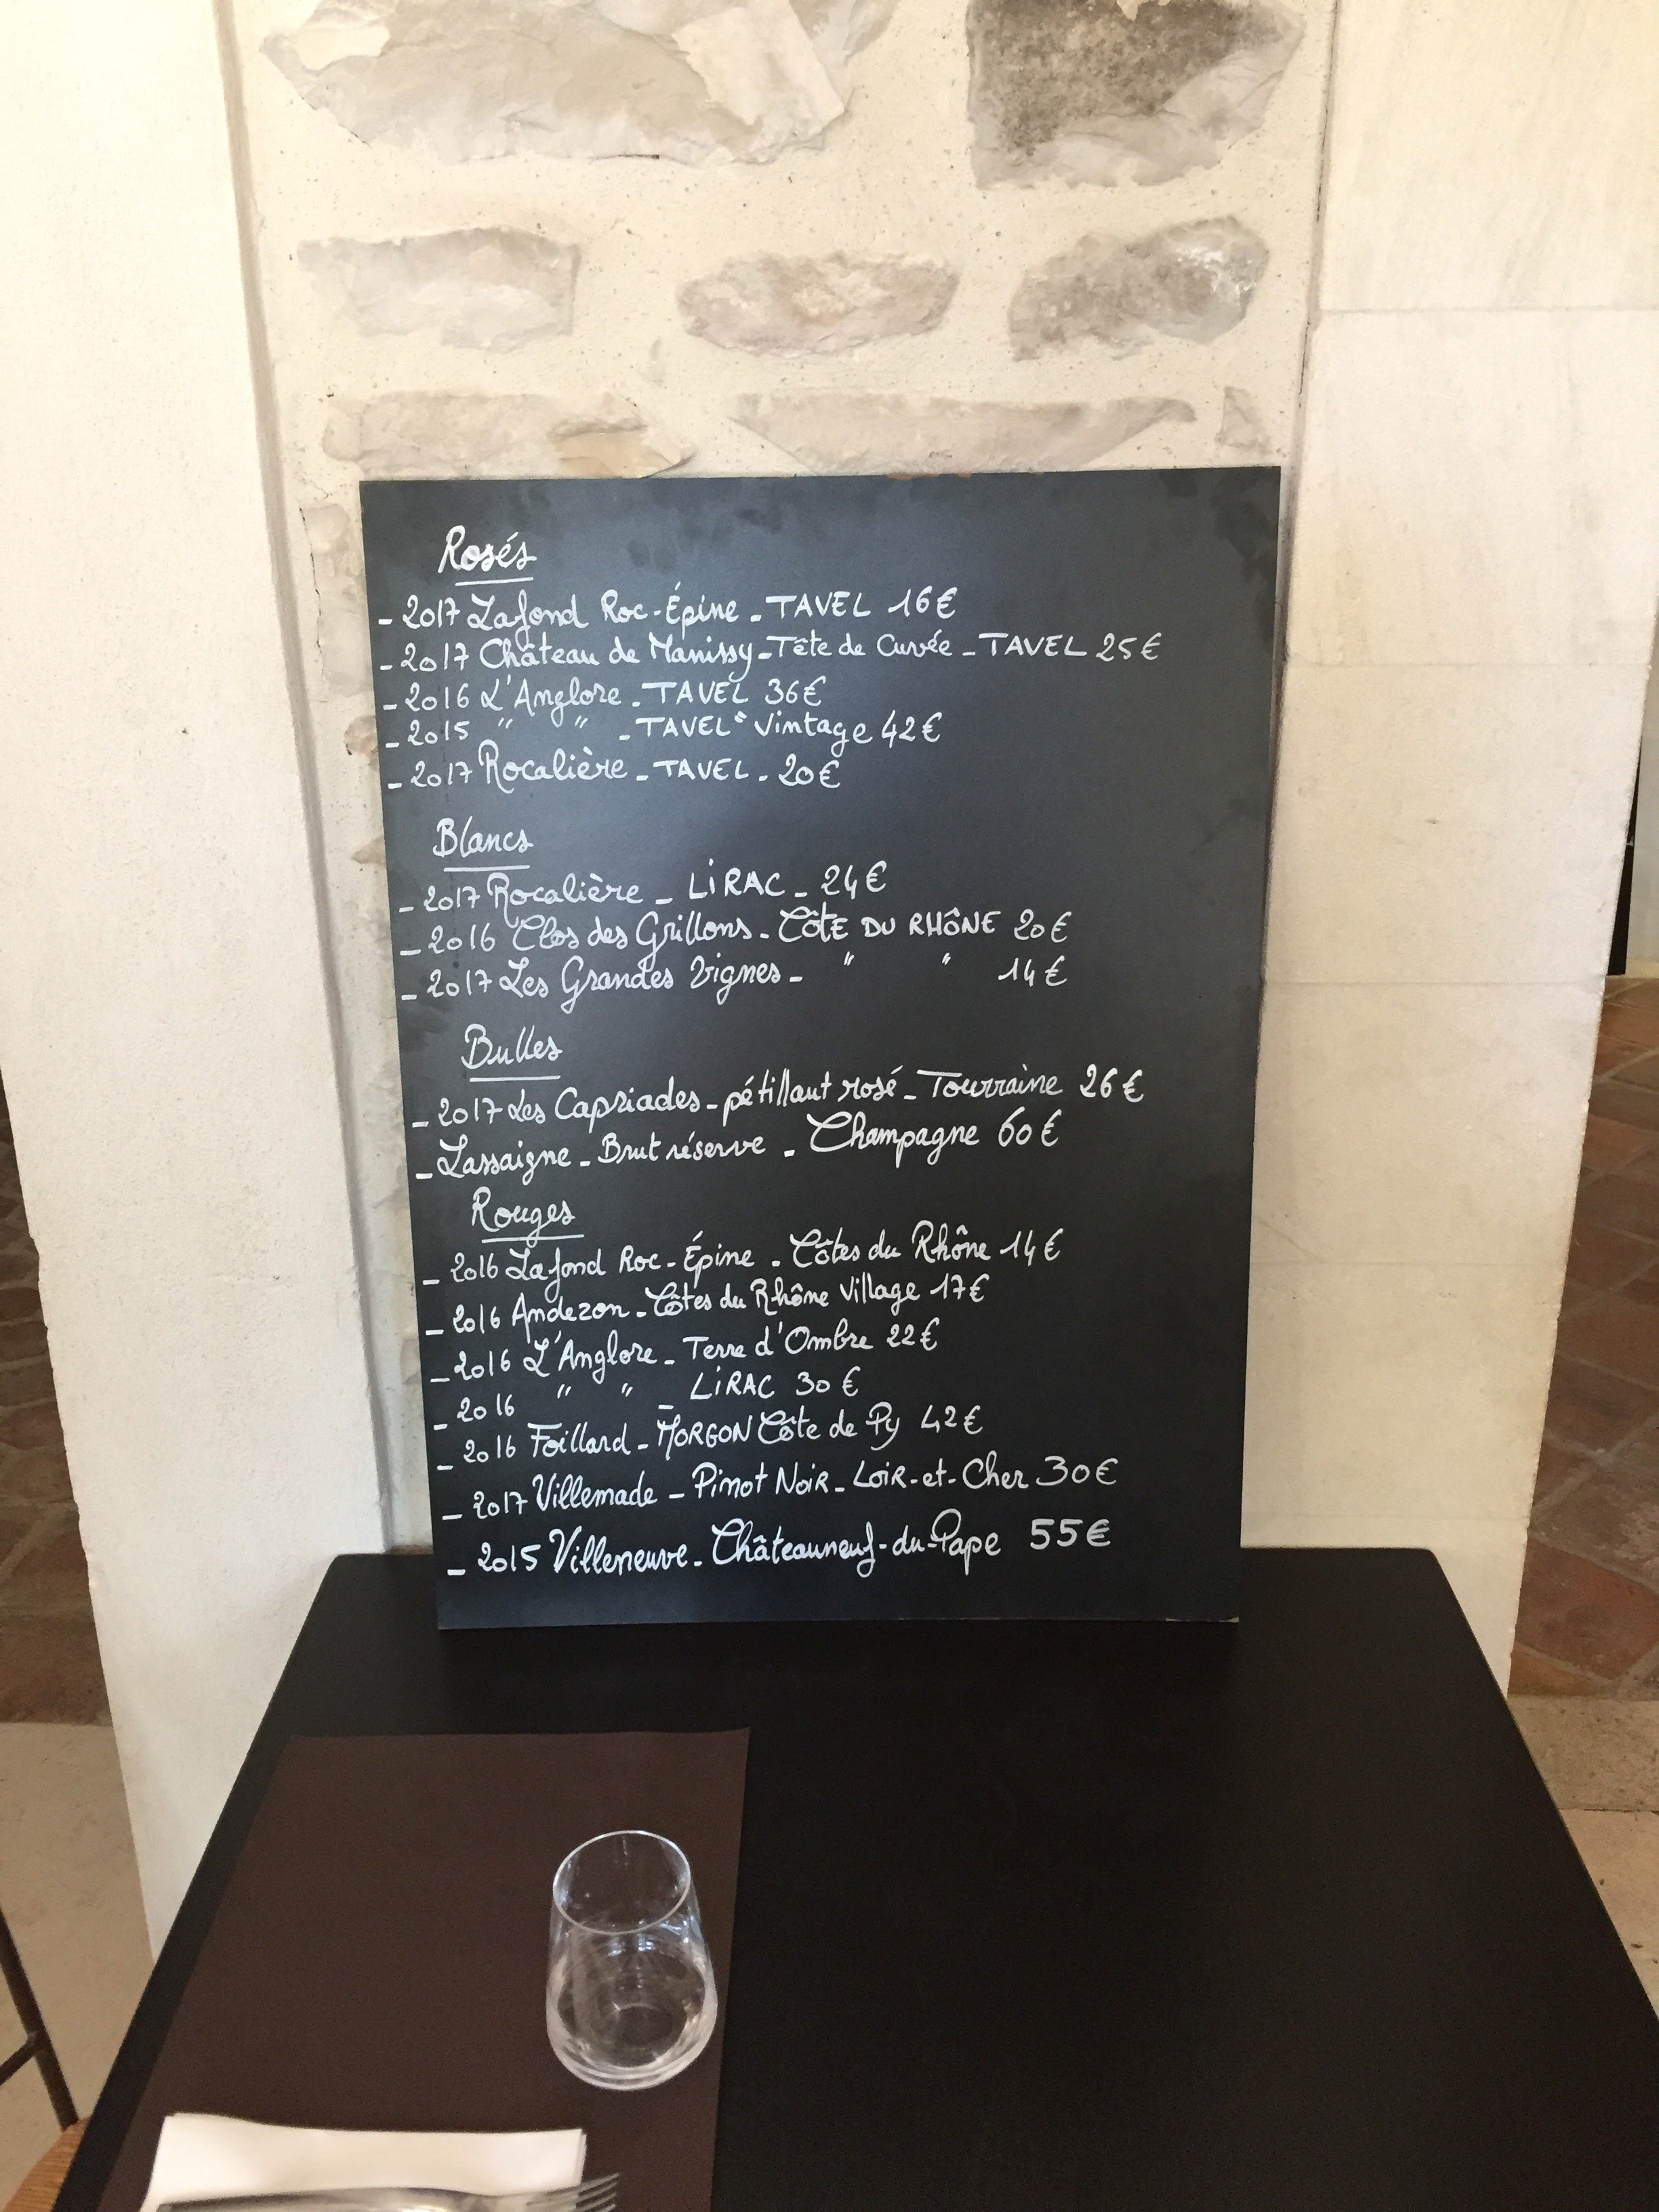 Rosés
- 2017 Lafond Roc-Épine - TAVEL 16€
- 2017 Château de Manissy - Tête de Cuvée - TAVEL 25€
- 2016 L'Anglore - TAVEL 36€
- 2015 " " - TAVEL "Vintage 42€
- 2017 Rocalière - TAVEL - 20€
Blancs
- 2017 Rocalière - LiRAC - 24€
- 2016 Clos des Grillons - CôtE DU RHÔNE 20€
- 2017 Les Grandes Vignes - " " 14€
Bulles
- 2017 Les Capriades - pétillant rosé - Tourraine 26€
- Lassaigne - Brut réserve - Champagne 60€
Rouges
- 2016 Lafond Roc-Épine - Côtes du Rhône 14€
- 2016 Andezon - Côtes du Rhône Village 17€
- 2016 L'Anglore - Terre d'Ombre 22€
- 2016 " " - LiRAC 30€
- 2016 Foillard - MORGON Côte de Py 42€
- 2017 Villemade - Pinot Noir - Loir-et-Cher 30€
- 2015 Villeneuve - Châteauneuf-du-Pape 55€